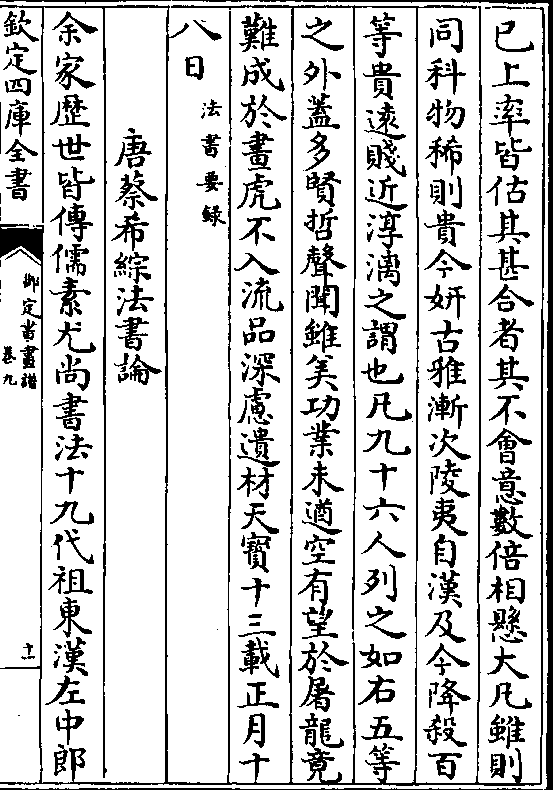 已上率皆估其甚合者其不會意數倍相懸大凡雖則
同科物稀則貴今妍古雅漸次陵夷自漢及今降殺百
等貴遠賤近淳漓之謂也凡九十六人列之如右五等
之外蓋多賢哲聲聞雖美功業未遒空有望於屠龍竟
難成於畫虎不入流品深慮遺材天寶十三載正月十
八日法書要録
唐蔡希綜法書論
余家歴世皆傳儒素尤尚書法十九代祖東漢左中郎
欽定四庫全書
御定書畫譜
卷九
十一